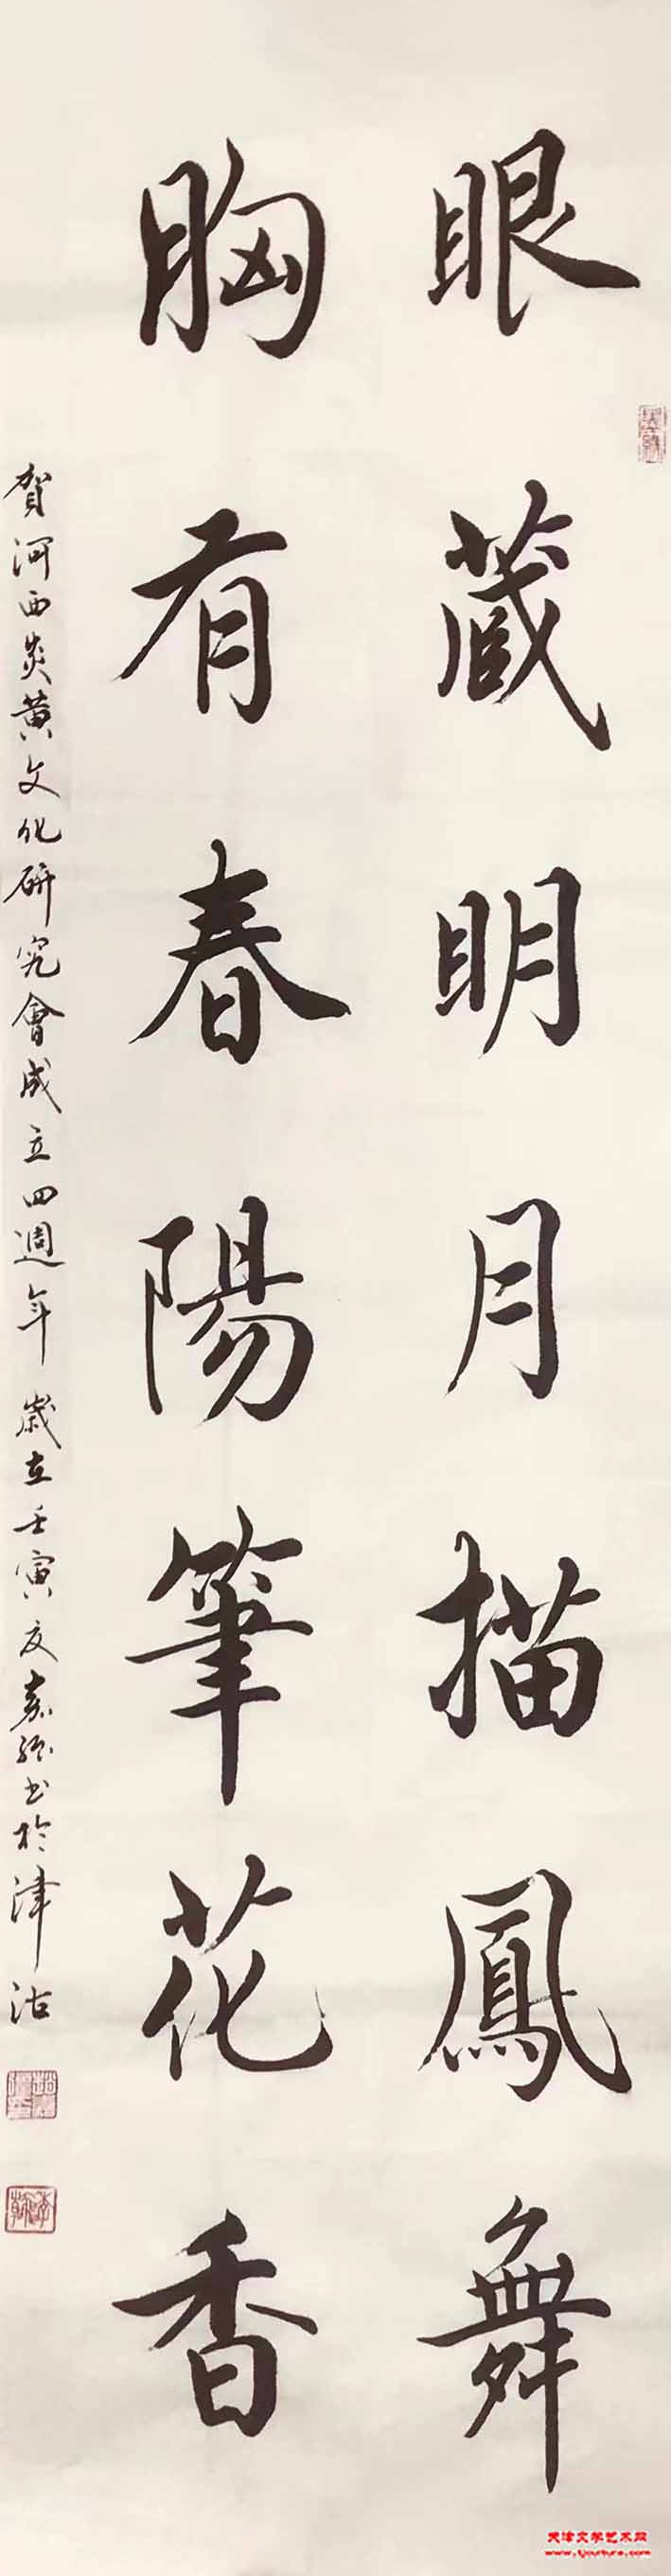 眼藏明月描鳳舞
胸有春陽筆花香
賀河西炎黄文化研究會成立四週年 歲在壬寅夏嘉强书於津沽
天津文学艺术网
www.tjculture.com